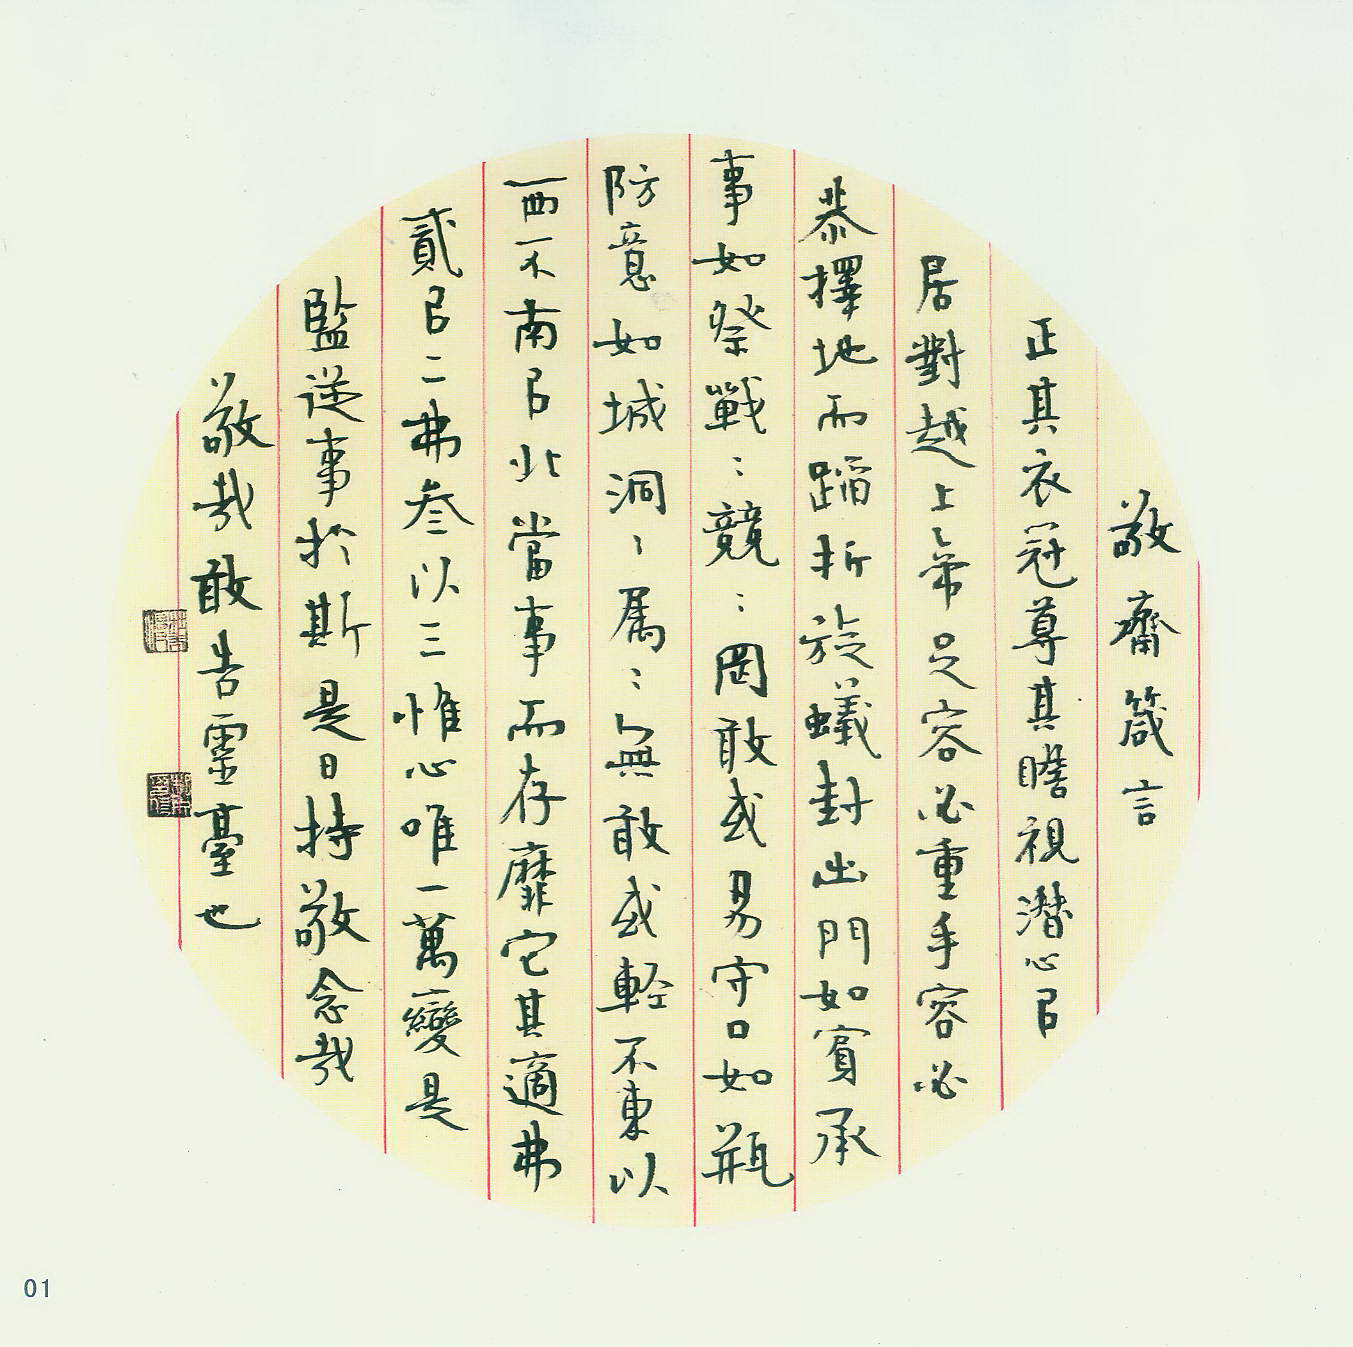 敬齋箴言
正其衣冠尊其瞻視潜心㠯
居對越上帝足容必重手容必
恭擇地而蹈折旋蟻封出門如賓承
事如祭戰〻競〻罔敢或易守口如瓶
防意如城洞〻属〻無敢或軽不東以
西不南㠯北當事而存靡它其適弗
貳㠯二弗叁以三惟心唯一萬變是
監從事於斯是曰持敬念哉
敬哉敢告靈臺也
01